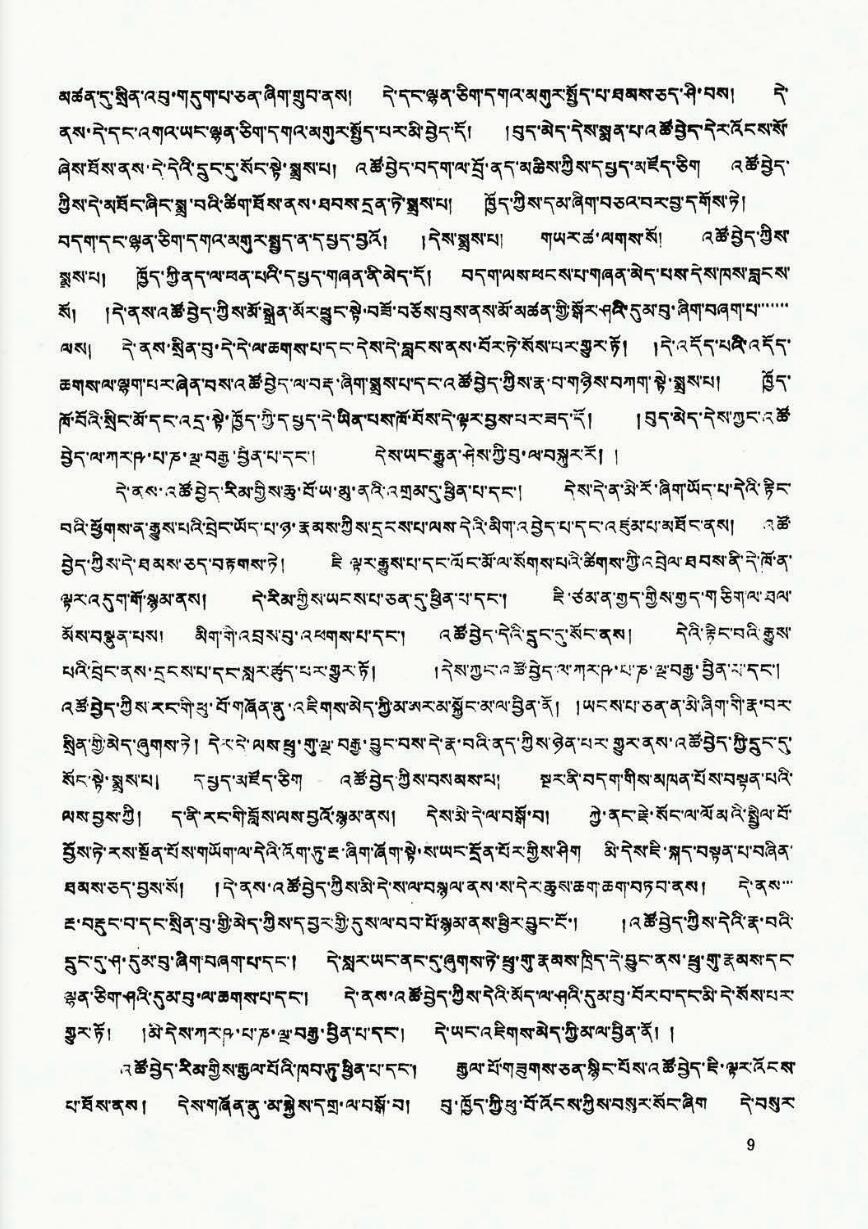 མཚན་དུ་སྲིན་འབུ་གདུག་པ་ཅན་ཞིག་གྲུབ་ནས། དེ་དང་ལྷན་ཅིག་དགའ་མགུར་སྤྱོད་པ་ཐམས་ཅད་ཤི་བས། དེ་
ནས་དེ་དང་འགའ་ཡང་ལྷན་ཅིག་དགའ་མགུར་སྤྱོད་པར་མི་བྱེད་དོ། །བུད་མེད་དེས་སྨན་པ་འཚོ་བྱེད་དེར་འོངས་སོ་
ཞེས་ཐོས་ནས་དེ་དེའི་དྲུང་དུ་སོང་སྟེ་སྨྲས་པ། འཚོ་བྱེད་བདག་ལ་བྲོ་ནད་མཆིས་ཀྱིས་དཔྱད་མཛོད་ཅིག འཚོ་བྱེད་
ཀྱིས་དེ་མཐོང་ཞིང་སྨྲ་བའི་ཚིག་ཐོས་ནས་ཐབས་དྲན་ཏེ་སྨྲས་པ། ཁྱོད་ཀྱིས་དམ་ཞིག་བཅའ་བར་བྱ་དགོས་ཏེ།
བདག་དང་ལྷན་ཅིག་དགའ་མགུར་སྤྱད་ན་དཔྱད་བྱའོ། །དེས་སྨྲས་པ། གཡར་ཚ་ལགས་སོ། འཚོ་བྱེད་ཀྱིས་
སྨྲས་པ། ཁྱོད་ཀྱི་ནད་ལ་ཕན་པའི་དཔྱད་གཞན་ནི་མེད་དོ། བདག་ལས་ཕངས་པ་གཞན་མེད་པས་དེས་ཁས་བླངས་
སོ། །དེ་ནས་འཚོ་བྱེད་ཀྱིས་མོ་སྒྲེན་མོར་ཕྱུང་སྟེ་བཟོ་བཅོས་བྱས་ནས་མོ་མཚན་གྱི་སྒོར་ཤའི་དུམ་བུ་ཞིག་བཞག་པ་
ལས། དེ་ནས་སྲིན་བུ་དེ་དེ་ལ་ཆགས་པ་དང་དེས་དེ་བླངས་ནས་བོར་ཏེ་སོས་པར་གྱུར་ཏོ། །དེ་འདོད་པའི་འདོད་
ཆགས་ལ་ལྷག་པར་ཞེན་བས་འཚོ་བྱེད་ལ་བརྡ་ཞིག་སྨྲས་པ་དང་འཚོ་བྱེད་ཀྱིས་རྣ་བ་གཉིས་བཀག་སྟེ་སྨྲས་པ། ཁྱོད་
ཁོ་བོའི་སྲིང་མོ་དང་འདྲ་སྟེ་ཁྱོད་ཀྱི་དཔྱད་དེ་ཡིན་པས་ཁོ་བོས་དེ་ལྟར་བྱས་པར་ཟད་དོ། །བུད་མེད་དེས་ཀྱང་འཚོ་
བྱེད་ལ་ཀརྵཱ་པ་ཎ་ལྔ་བརྒྱ་བྱིན་པ་དང་། དེས་ཡང་རྒྱུན་ཤེས་ཀྱི་བུ་ལ་བསྐུར་རོ། །
དེ་ནས་འཚོ་བྱེད་རིམ་གྱིས་ཆུ་བོ་ཡ་མུ་ནའི་འགྲམ་དུ་ཕྱིན་པ་དང་། དེས་དེ་ན་མི་རོ་ཞིག་ཡོད་པ་དེའི་རྟིང་
བའི་ཕྱོགས་ན་རྒྱུས་པའི་བྲེང་ཡོད་པ་ཉ་རྣམས་ཀྱིས་དྲངས་པ་ལས་དེའི་མིག་འབྱེད་པ་དང་འཛུམ་པ་མཐོང་ནས། འཚོ་
བྱེད་ཀྱིས་དེ་ཐམས་ཅད་བརྟགས་ཏེ། ཇི་ལྟར་རྒྱུས་པ་དང་ལོང་མོ་ལ་སོགས་པའི་ཚིགས་ཀྱི་འབྲེལ་ཐབས་ནི་དེ་ཁོ་ན་
ལྟར་འདུག་གོ་སྙམ་ནས། དེ་རིམ་གྱིས་ཡངས་པ་ཅན་དུ་ཕྱིན་པ་དང་། ཇི་ཙམ་ན་གྱད་གྱིས་གྱད་གཅིག་ལ་ཐལ་
མོས་བསྣུན་པས། མིག་གི་འབྲས་བུ་འཕགས་པ་དང་། འཚོ་བྱེད་དེའི་དྲུང་དུ་སོང་ནས། དེའི་རྟིང་བའི་རྒྱུས་
པའི་བྲེང་ནས་དྲངས་པ་དང་སླར་ཚུད་པར་གྱུར་ཏོ། །དེས་ཀྱང་འཚོ་བྱེད་ལ་ཀརྵཱ་པ་ཎ་ལྔ་བརྒྱ་བྱིན་པ་དང་།
འཚོ་བྱེད་ཀྱིས་རང་གི་ཕུ་བོ་གཞོན་ནུ་འཇིགས་མེད་ཀྱི་མ་ཨར་མ་སྐྱོང་མ་ལ་བྱིན་ནོ། །ཡངས་པ་ཅན་ན་མི་ཞིག་གི་རྣ་བར་
སྲིན་གྱི་མེད་ཞུགས་ཏེ། དེར་དེ་ལས་ཕྲུ་གུ་ལྔ་བརྒྱ་བྱུང་བས་དེ་རྣ་བའི་ནད་ཀྱིས་ཉེན་པར་གྱུར་ནས་འཚོ་བྱེད་ཀྱི་དྲུང་དུ་
སོང་སྟེ་སྨྲས་པ། དཔྱད་མཛོད་ཅིག འཚོ་བྱེད་ཀྱིས་བསམས་པ། སྔར་ནི་བདག་གིས་མཁན་པོས་བསྟན་པའི་
ལས་བྱས་ཀྱི། ད་ནི་རང་གི་བློས་ལས་བྱའོ་སྙམ་ནས། དེས་མི་དེ་ལ་བསྒོ་བ། ཀྱེ་ནང་རྗེ་སོང་ལ་ལོ་མའི་སྤྱིལ་བོ་
བྱོས་ཏེ་རས་སྔོན་པོས་གཡོག་ལ་དེའི་འོག་ཏུ་རྔ་ཞིག་ཞོག་སྟེ་ས་ཡང་དྲོན་པོར་གྱིས་ཤིག མི་དེས་ཇི་སྐད་བསྟན་པ་བཞིན་
ཐམས་ཅད་བྱས་སོ། །དེ་ནས་འཚོ་བྱེད་ཀྱིས་མི་དེ་ས་ལ་བསྙལ་ནས་ས་དེར་ཆུས་ཆག་ཆག་བཏབ་ནས། དེ་ནས་
རྔ་བརྡུང་བ་དང་སྲིན་བུ་གྱི་མེད་ཀྱིས་དབྱར་གྱི་དུས་ལ་བབ་པོ་སྙམ་ནས་ཕྱིར་བྱུང་ངོ་། །འཚོ་བྱེད་ཀྱིས་དེའི་རྣ་བའི་
དྲུང་དུ་ཤ་དུམ་བུ་ཞིག་བཞག་པ་དང་། དེ་སླར་ཡང་ནང་དུ་ཞུགས་ཏེ་ཕྲུ་གུ་རྣམས་ཁྲིད་དེ་བྱུང་ནས་ཕྲུ་གུ་རྣམས་དང་
ལྷན་ཅིག་ཤའི་དུམ་བུ་ལ་ཆགས་པ་དང་། དེ་ནས་འཚོ་བྱེད་ཀྱིས་དེའི་མོད་ལ་ཤའི་དུམ་བུ་བོར་བ་དང་མི་དེ་སོས་པར་
གྱུར་ཏོ། །མི་དེས་ཀརྵཱ་པ་ཎ་ལྔ་བརྒྱ་བྱིན་པ་དང་། དེ་ཡང་འཇིགས་མེད་ཀྱི་མ་ལ་བྱིན་ནོ། །
འཚོ་བྱེད་རིམ་གྱིས་རྒྱལ་པོའི་ཁབ་ཏུ་ཕྱིན་པ་དང་། རྒྱལ་པོ་གཟུགས་ཅན་སྙིང་པོས་འཚོ་བྱེད་ཇི་ལྟར་འོངས་
པ་ཐོས་ནས། དེས་གཞོན་ནུ་མ་སྐྱེས་དགྲ་ལ་བསྒོ་བ། བུ་ཁྱོད་ཀྱི་ཕུ་བོ་འོངས་ཀྱིས་བསུར་སོང་ཞིག དེ་བསུར
9